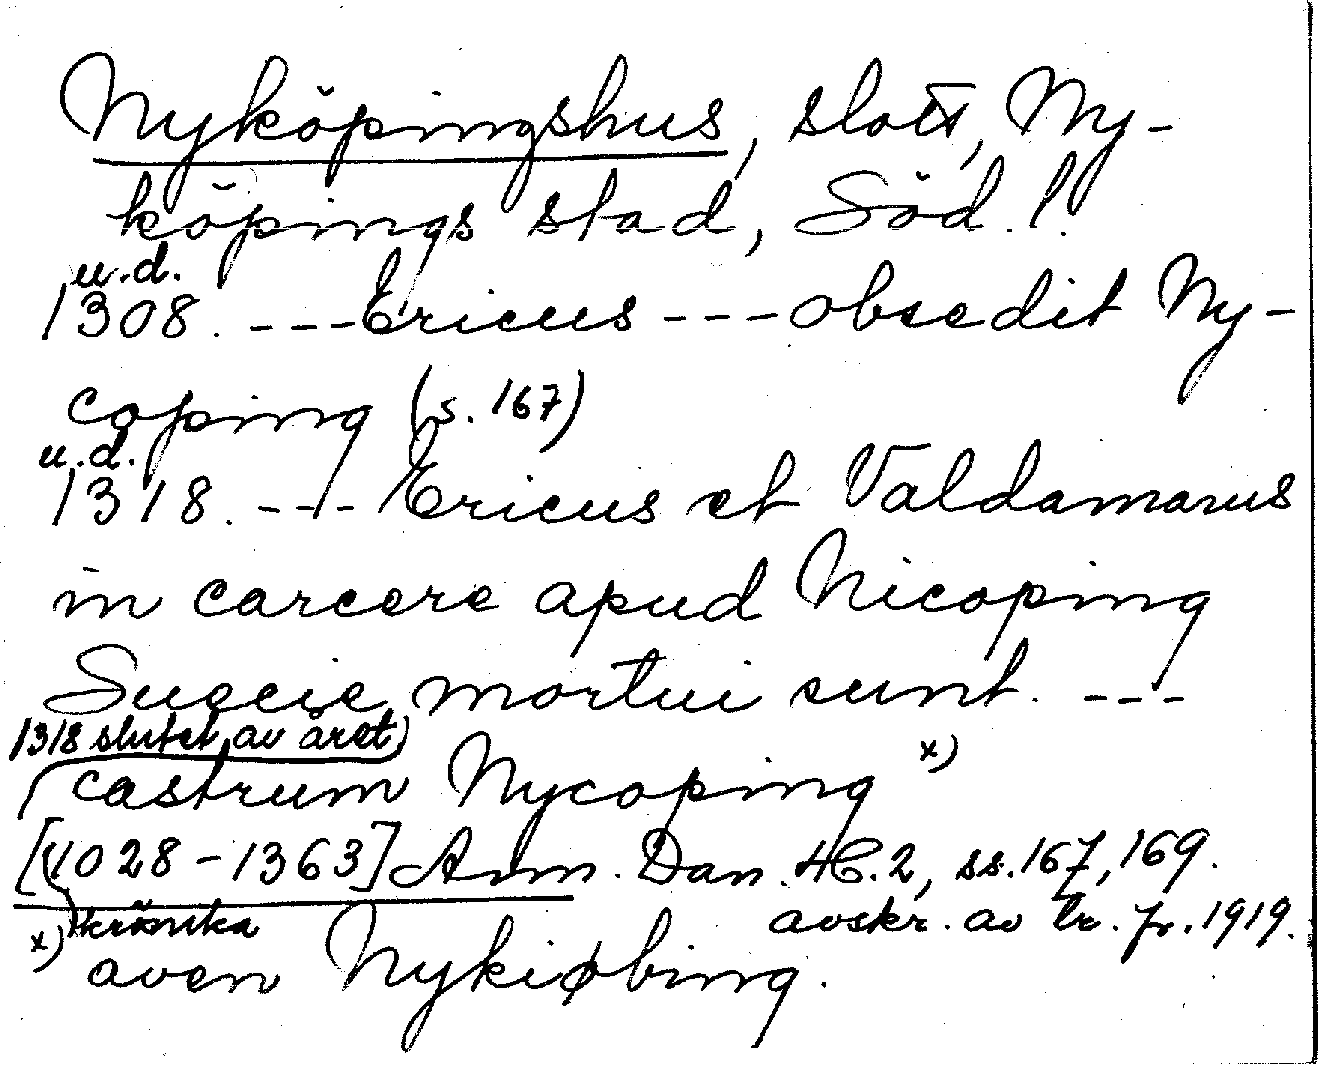 Nyköpingshus, slott, Ny-
köpings stad, Söd. l.
u.d.
1308. ---Ericus---obsedit Ny-
coping (s. 167)
u.d.
1318. ---Ericus et Valdamarus
in carcere apud Nicoping
Suecie mortui sunt. ---
1318 slutet av året)
castrum Nycoping x)
[(1028-1363] Ann. Dan. 4C.2, ss.167,169.
krönika avskr. av tr. fr. 1919.
x) aven Nykiøbing.